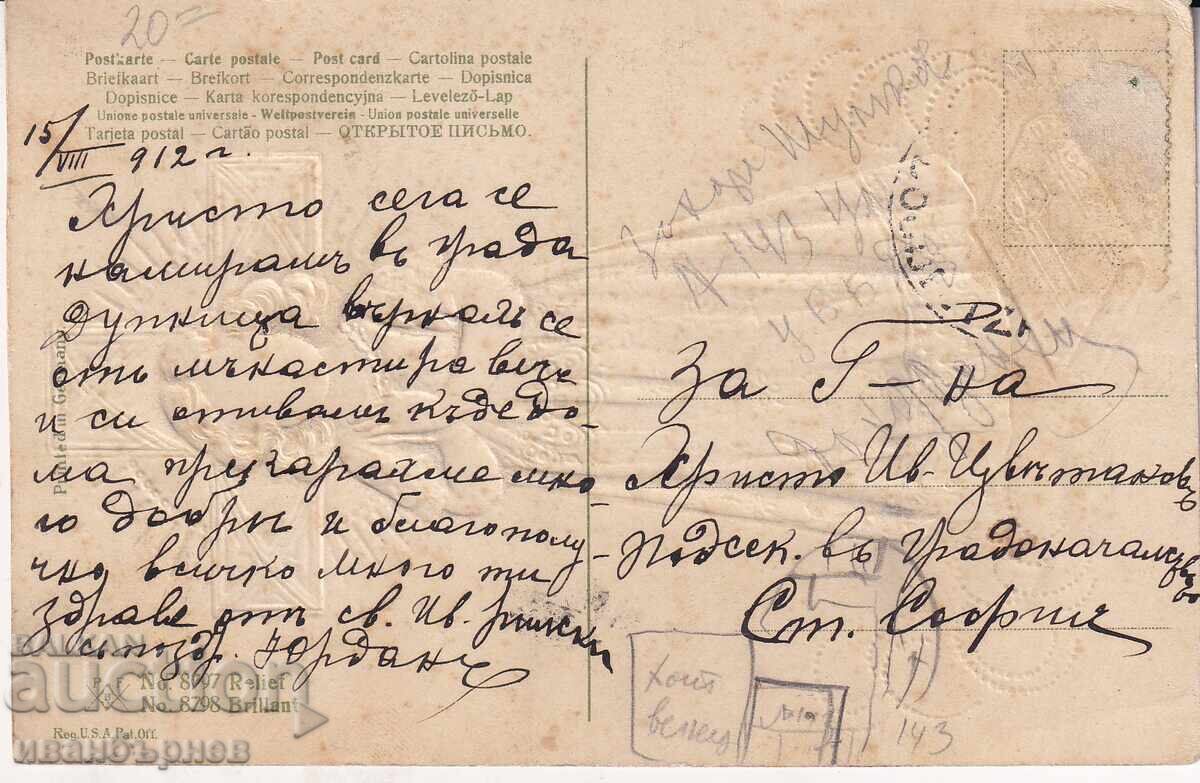 20=
Postkarte — Carte postale — Post card — Cartolina postale
Briefkaart — Brefkort — Correspondenzkarte — Dopisnica
Dopisnice — Karta korespondencyjna — Levelező-Lap
Unione postale universale - Weltpostverein - Union postale universelle
Tarjeta postal — Cartão postal — ОТКРЫТОЕ ПИСЬМО.
15/VIII 912 г.
Христо сега се
намирамъ въ града
Дупница върналъ се
отъ мънастира вече
и си отивамъ къде до-
ма прекарахме мно-
го добрѣ и благополу-
чно всичко много ти
здраве отъ св. Ив. Рилски
съ позд. Юрданъ
Printed in Germany
No. 8097 Relief
No. 8298 Brillant
Reg. U.S.A. Pat. Off.
За Г-на
Христо Ив. Цвѣтановъ
подсек. въ Градоначалство
Ст. София
143
143
BALKAN
auction
иванбърнев